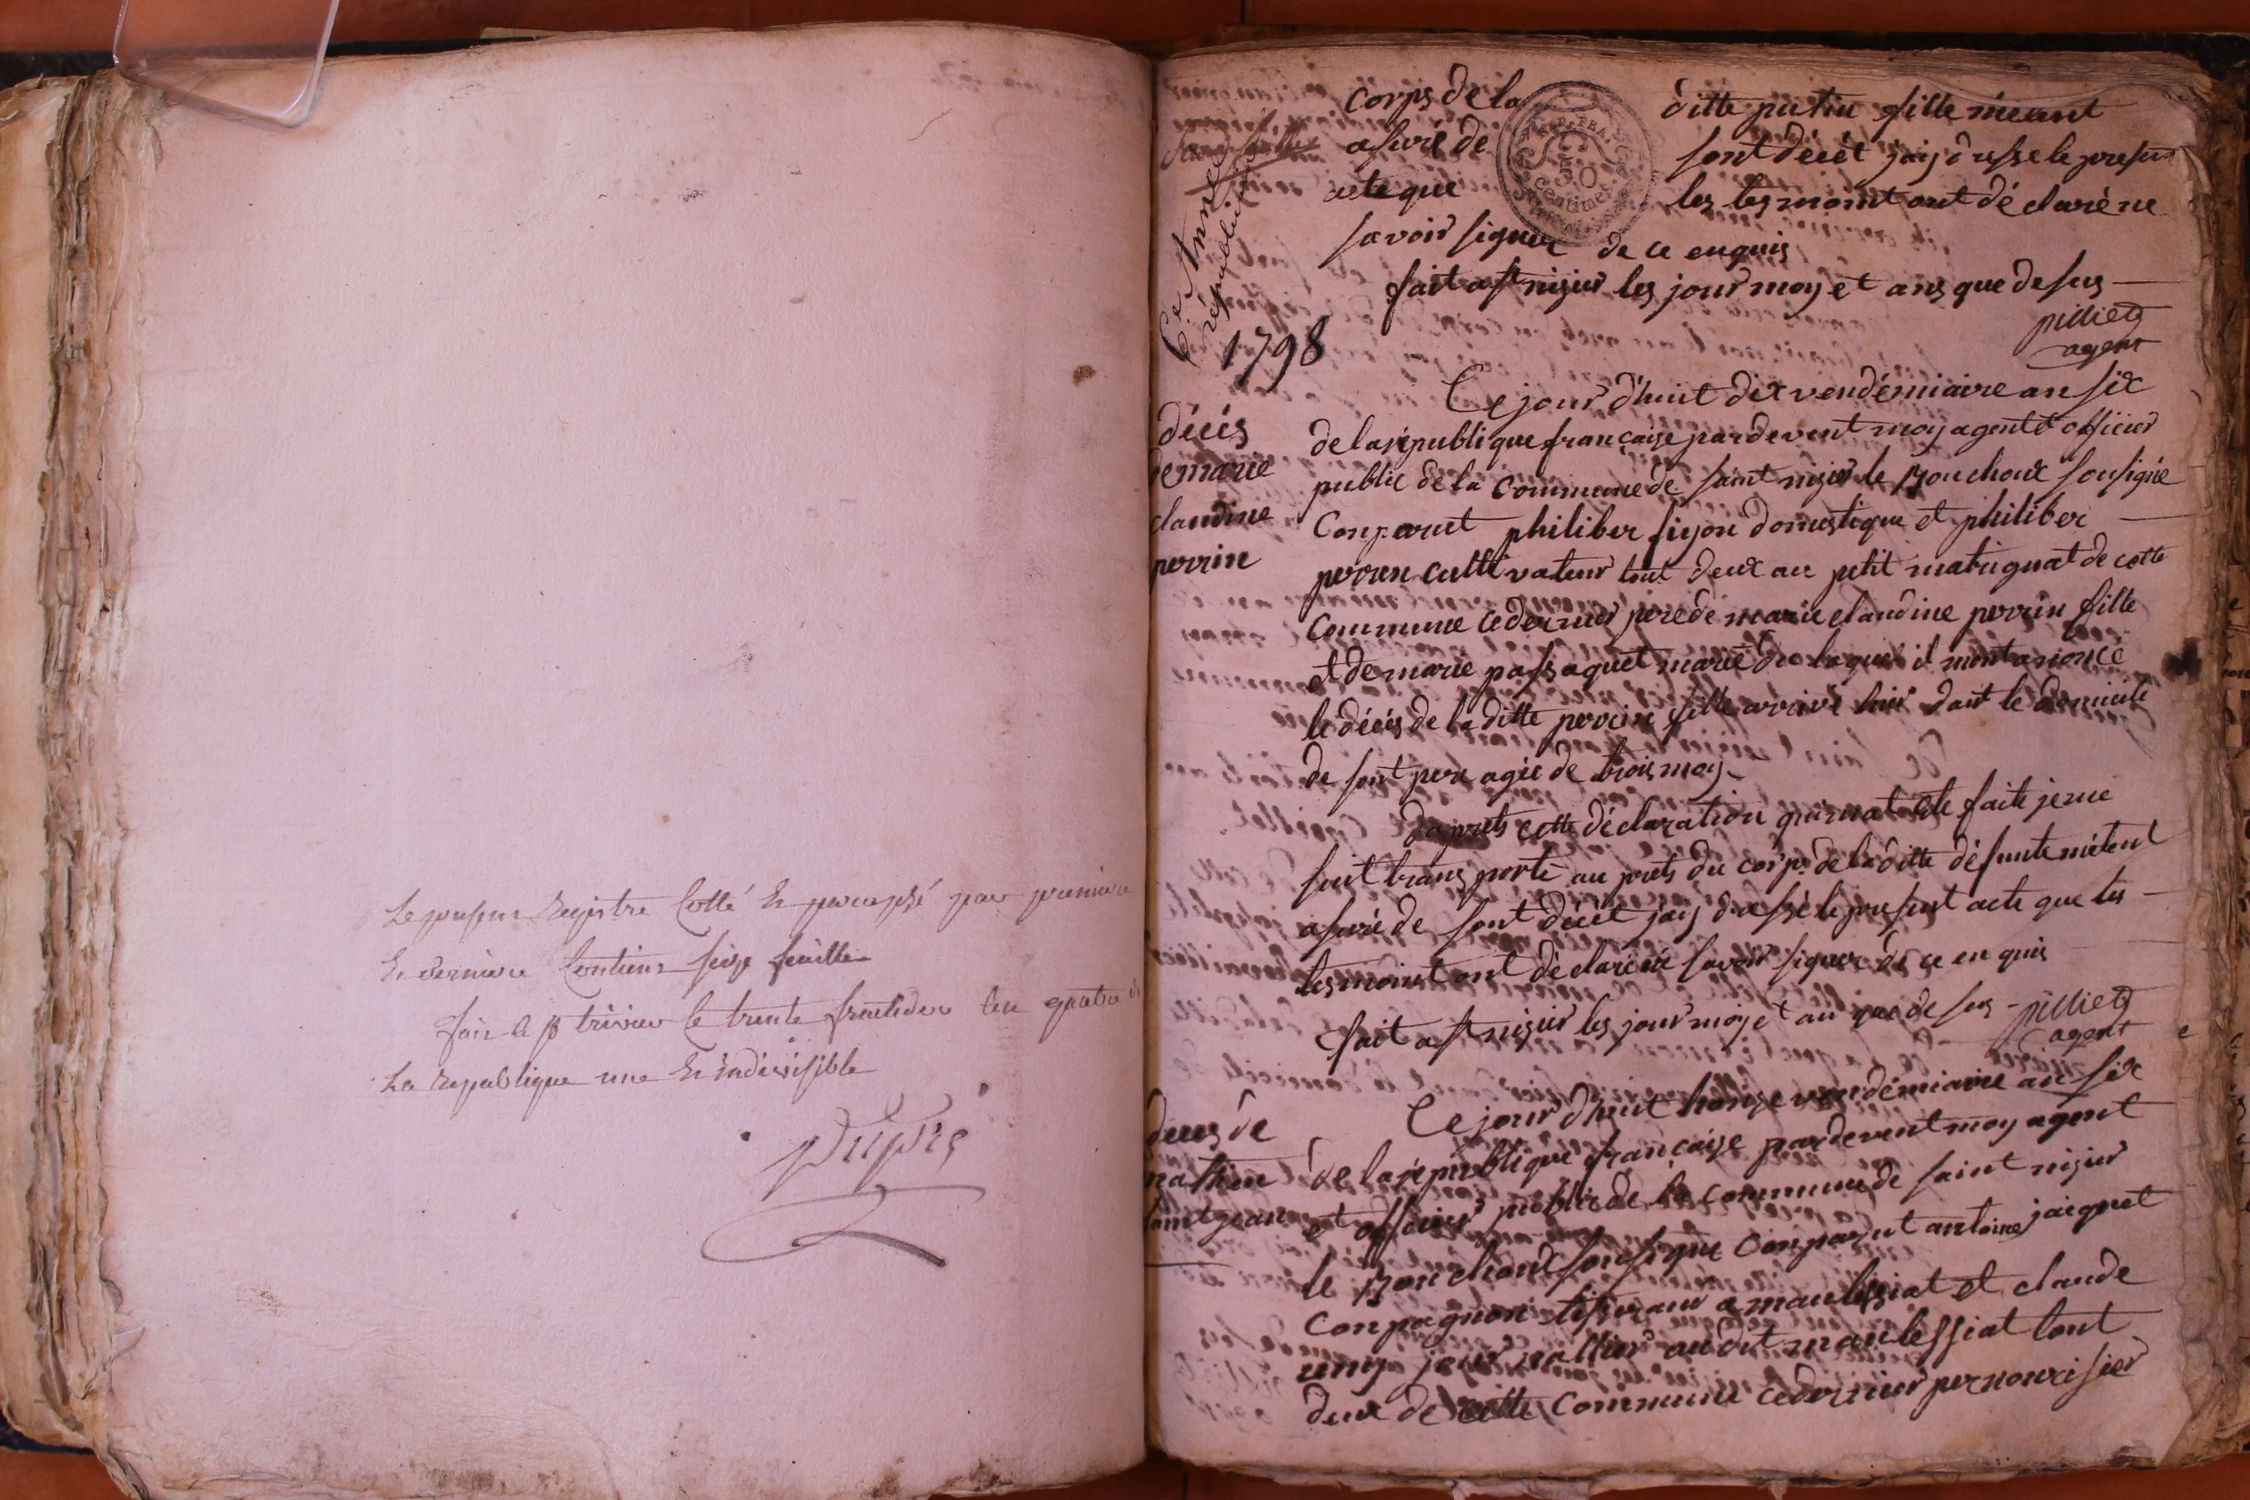 Le present Registre Cotté et paraphé par premiere
et derniere Contient seize feuilles
fait a st trivier le trente fructidor l'an quatre de
La République une et indivisible
Dupuis
6e Année
républicaine
1798
corps de la ditte putin fille méeant
asuré de sont décèt jaiy dresse le presen
acte que les tesmoint ont déclaré ne
savoir signer de ce enquis
fait a st nizier les jour moy et ans que desus
pilliet
agent
décés
de marie
claudine
perrin
Ce jour d'huit dix vendémiaire an six
de la république française par devent moy agent et officier
public de la Commune de saint nizier le Bouchoux sousigné
Conparut philiber fijon domestique et philiber
perren cultivateur tout deux au petit matignat de cette
Commune ce dernier pere de marie claudine perrin fille
et de marie passaquet marié du laquei il mont anoncé
le décés de la ditte perrin fille arrivé hier dant le domicile
de sont pere agée de trois moy
D'aprets cette déclaration qui mat eté faite je me
suit trans porté au prets du corps de la ditte défunte métent
asuré de sont décèt jaiy dressé le present acte que les
tesmoint ont déclaré ne savoir signer de ce en quis
fait a st nizier les jour moy et an que desus
pilliet
agent
deces de
mathieu
saint jean
Ce jour d'huit honze vendémiaire an six
de la république française par devent moy agent
et officier public de la commune de saint nizier
le Bouchoud sousigné Conparut antoine jacquet
Conpagnon tisserant a maulessiat et claude
jour nallier au dit maulessiat tout
deux de cette Commune ce dernier per nourisier